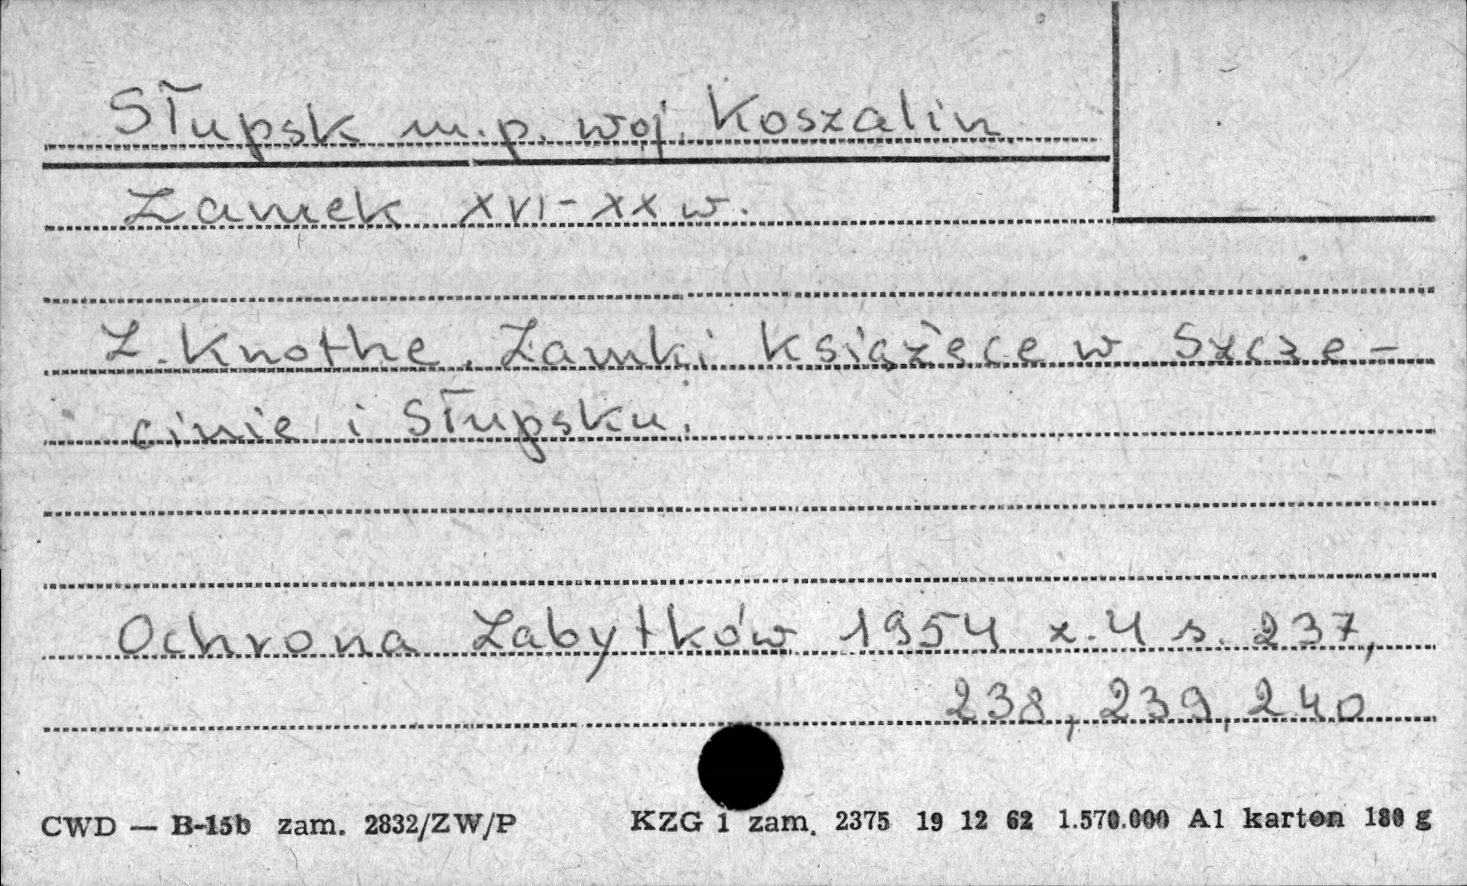 Słupsk m.p. woj. Koszalin
Zamek XVI-XX w.
Z. Knothe. Zamki książęce w Szcze-
cinie i Słupsku.
Ochrona Zabytków 1954 z. 4 s. 237,
238, 239, 240
CWD — B-15b zam. 2832/ZW/P KZG 1 zam. 2375 19 12 62 1.570.000 A1 karton 180 g